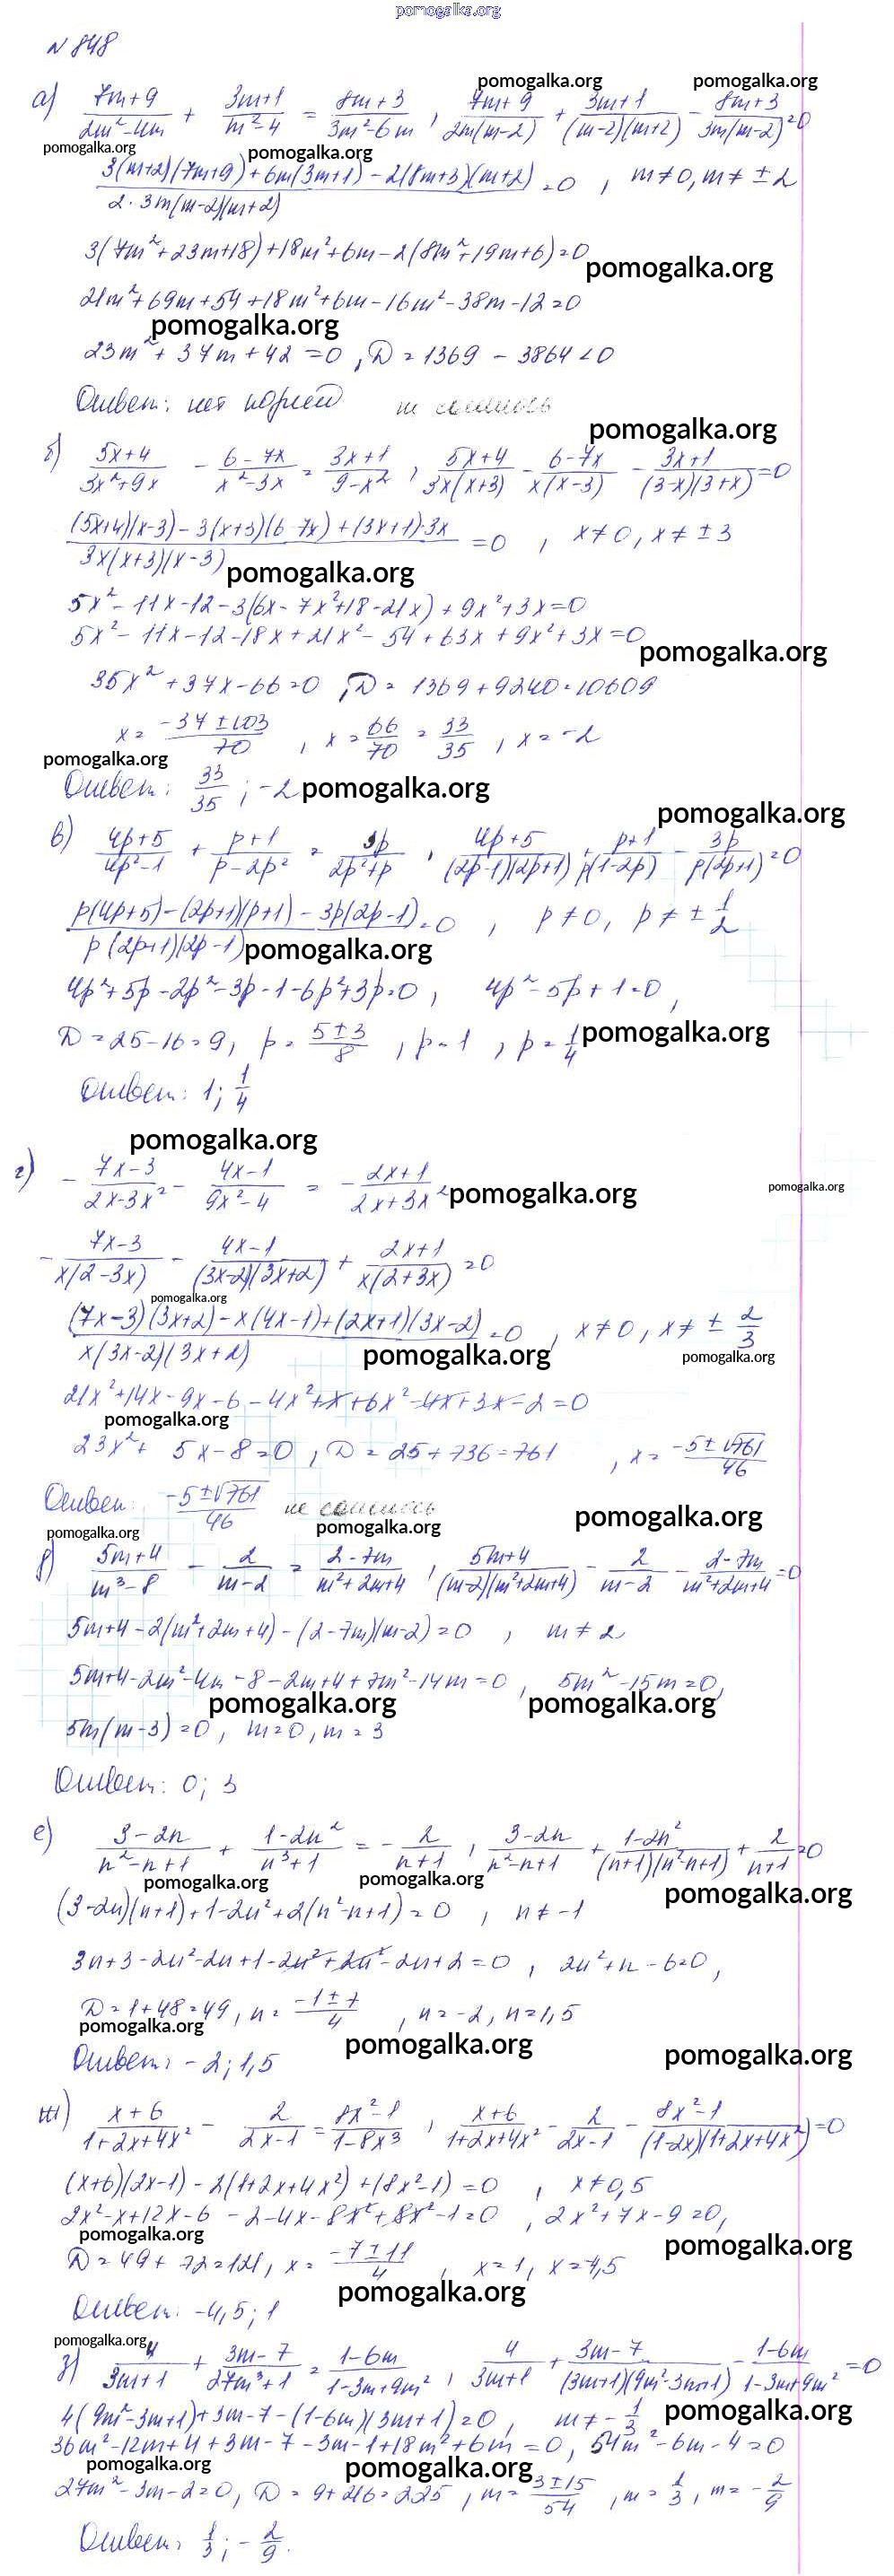 pomogalka.org
N 848
а) (7m+9)/(2m²-4m) + (3m+1)/(m²-4) = (8m+3)/(3m²-6m), (7m+9)/(2m(m-2)) + (3m+1)/((m-2)(m+2)) - (8m+3)/(3m(m-2)) = 0
pomogalka.org pomogalka.org
pomogalka.org pomogalka.org
(3(m+2)(7m+9)+6m(3m+1)-2(8m+3)(m+2))/(2·3m(m-2)(m+2)) = 0, m≠0, m≠±2
3(7m²+23m+18)+18m²+6m-2(8m²+19m+6)=0
pomogalka.org
21m²+69m+54+18m²+6m-16m²-38m-12=0
pomogalka.org
23m²+37m+42=0, D=1369-3864<0
Ответ: нет корней не сошлось
pomogalka.org
б) (5x+4)/(3x²+9x) - (6-7x)/(x²-3x) = (3x+1)/(9-x²), (5x+4)/(3x(x+3)) - (6-7x)/(x(x-3)) - (3x+1)/((3-x)(3+x)) = 0
((5x+4)(x-3)-3(x+3)(6-7x)+(3x+1)·3x)/(3x(x+3)(x-3)) = 0, x≠0, x≠±3
pomogalka.org
5x²-11x-12-3(6x-7x²+18-21x)+9x²+3x=0
5x²-11x-12-18x+21x²-54+63x+9x²+3x=0
pomogalka.org
35x²+37x-66=0, D=1369+9240=10609
x=(-37±103)/70, x=66/70=33/35, x=-2
pomogalka.org
Ответ: 33/35; -2
pomogalka.org
pomogalka.org
в) (4p+5)/(4p²-1) + (p+1)/(p-2p²) = 3p/(2p²+p), (4p+5)/((2p-1)(2p+1)) + (p+1)/(p(1-2p)) - 3p/(p(2p+1)) = 0
(p(4p+5)-(2p+1)(p+1)-3p(2p-1))/(p(2p+1)(2p-1)) = 0, p≠0, p≠±1/2
pomogalka.org
4p²+5p-2p²-3p-1-6p²+3p=0, 4p²-5p+1=0,
D=25-16=9, p=(5±3)/8, p=1, p=1/4
pomogalka.org
Ответ: 1; 1/4
pomogalka.org
г) -(7x-3)/(2x-3x²) - (4x-1)/(9x²-4) = -(2x+1)/(2x+3x²)
pomogalka.org
pomogalka.org
-(7x-3)/(x(2-3x)) - (4x-1)/((3x-2)(3x+2)) + (2x+1)/(x(2+3x)) = 0
pomogalka.org
((7x-3)(3x+2)-x(4x-1)+(2x+1)(3x-2))/(x(3x-2)(3x+2)) = 0, x≠0, x≠±2/3
pomogalka.org pomogalka.org
21x²+14x-9x-6-4x²+x+6x²-4x+3x-2=0
pomogalka.org
23x²+5x-8=0, D=25+736=761, x=(-5±√761)/46
Ответ: (-5±√761)/46 не сошлось
pomogalka.org
pomogalka.org pomogalka.org
д) (5m+4)/(m³-8) - 2/(m-2) = (2-7m)/(m²+2m+4), (5m+4)/((m-2)(m²+2m+4)) - 2/(m-2) - (2-7m)/(m²+2m+4) = 0
5m+4-2(m²+2m+4)-(2-7m)(m-2)=0, m≠2
5m+4-2m²-4m-8-2m+4+7m²-14m=0, 5m²-15m=0,
pomogalka.org pomogalka.org
5m(m-3)=0, m=0, m=3
Ответ: 0; 3
е) (3-2n)/(n²-n+1) + (1-2n²)/(n³+1) = -2/(n+1), (3-2n)/(n²-n+1) + (1-2n²)/((n+1)(n²-n+1)) + 2/(n+1) = 0
pomogalka.org pomogalka.org pomogalka.org
(3-2n)(n+1)+1-2n²+2(n²-n+1)=0, n≠-1
3n+3-2n²-2n+1-2n²+2n²-2n+2=0, 2n²+n-6=0,
D=1+48=49, n=(-1±7)/4, n=-2, n=1,5
pomogalka.org
pomogalka.org pomogalka.org
Ответ: -2; 1,5
ж) (x+6)/(1+2x+4x²) - 2/(2x-1) = (8x²-1)/(1-8x³), (x+6)/(1+2x+4x²) - 2/(2x-1) - (8x²-1)/((1-2x)(1+2x+4x²)) = 0
(x+6)(2x-1)-2(1+2x+4x²)+(8x²-1)=0, x≠0,5
2x²-x+12x-6-2-4x-8x²+8x²-1=0, 2x²+7x-9=0,
pomogalka.org pomogalka.org
D=49+72=121, x=(-7±11)/4, x=1, x=-4,5
pomogalka.org
Ответ: -4,5; 1
pomogalka.org
з) 4/(3m+1) + (3m-7)/(27m³+1) = (1-6m)/(1-3m+9m²), 4/(3m+1) + (3m-7)/((3m+1)(9m²-3m+1)) - (1-6m)/(1-3m+9m²) = 0
4(9m²-3m+1)+3m-7-(1-6m)(3m+1)=0, m≠-1/3
pomogalka.org
36m²-12m+4+3m-7-3m-1+18m²+6m=0, 54m²-6m-4=0
pomogalka.org pomogalka.org
27m²-3m-2=0, D=9+216=225, m=(3±15)/54, m=1/3, m=-2/9
Ответ: 1/3; -2/9.